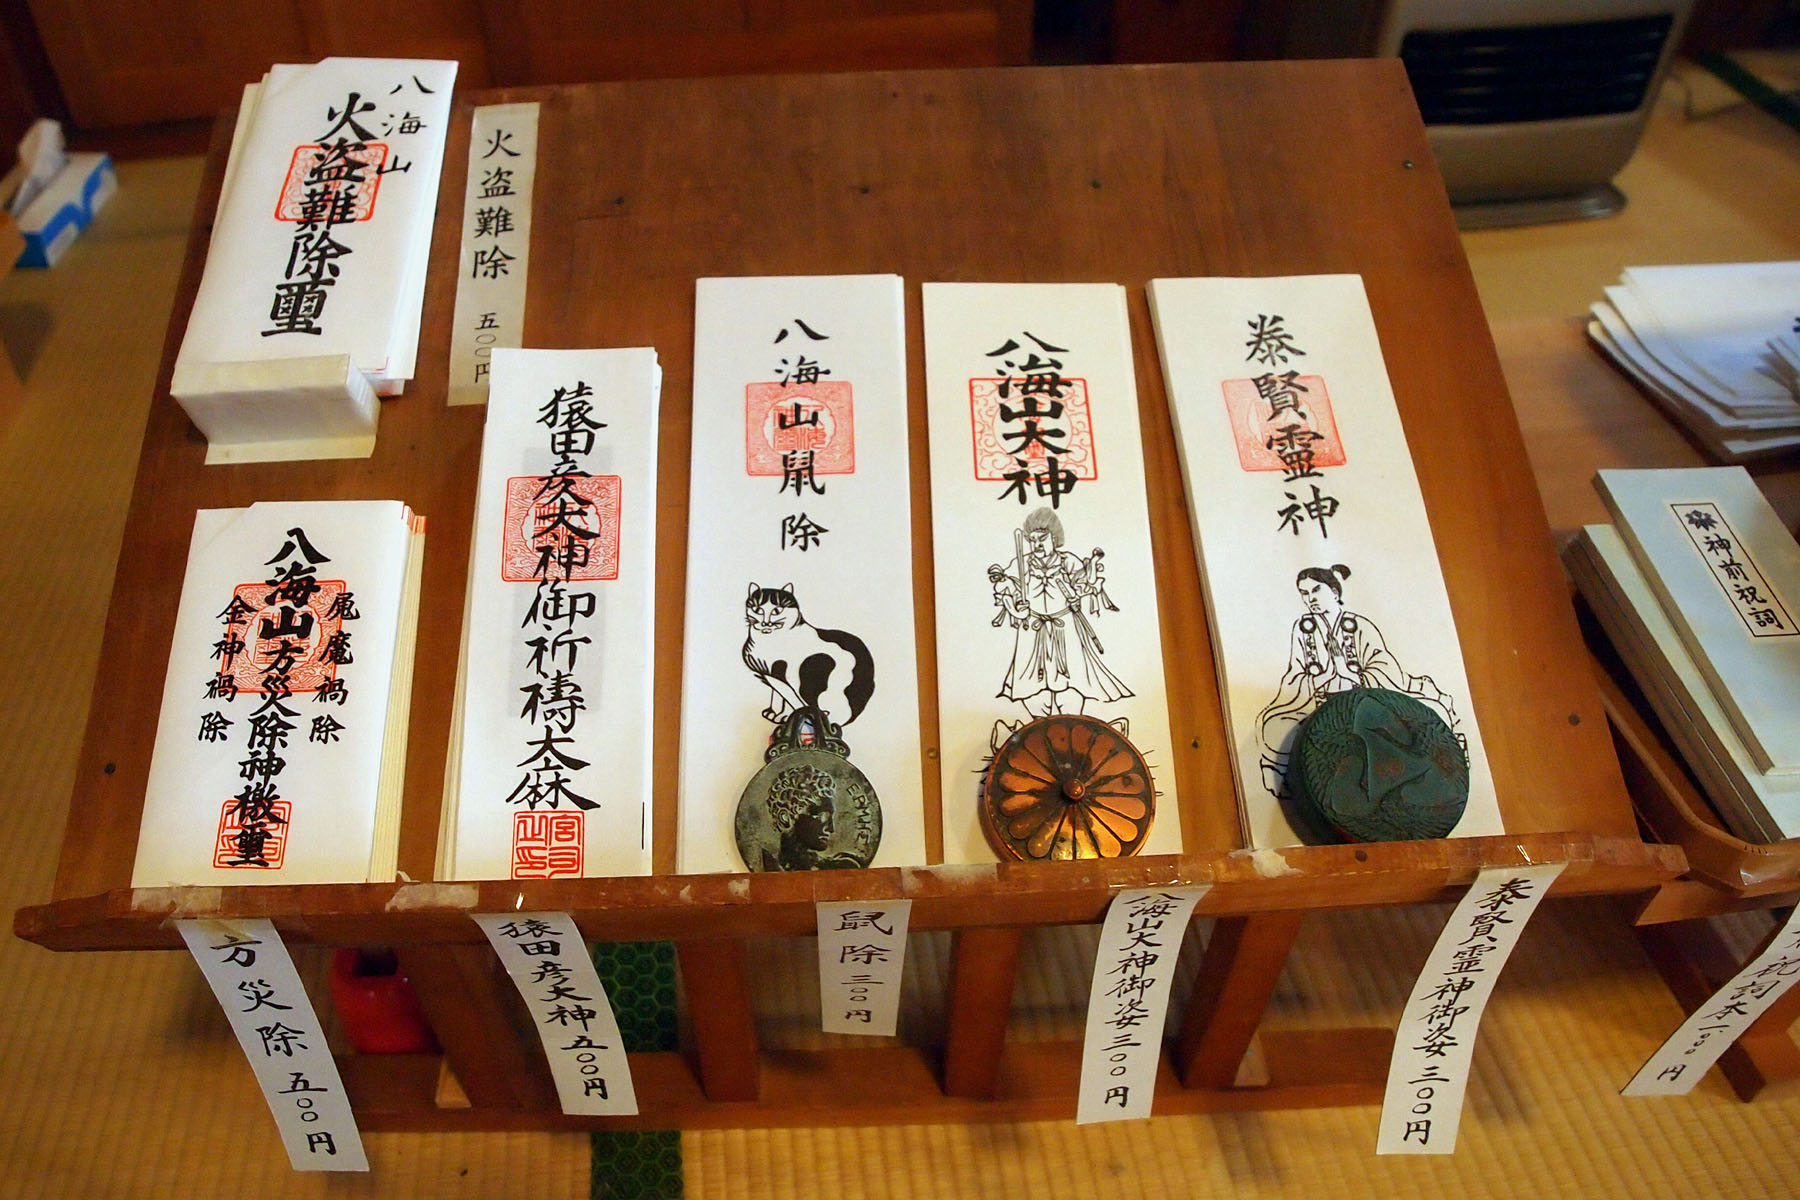 八海山
火盗難除璽
火盗難除 五〇〇円
八海山方災除神璽
金神禍除
猿田彦大神御祈祷大麻
八海山鼠除
八海山大神
泰賢霊神
神前祝詞
方災除 五〇〇円
猿田彦大神 五〇〇円
鼠除 三〇〇円
八海山大神御姿 三〇〇円
泰賢霊神御姿 三〇〇円
祝詞本 一、〇〇〇円